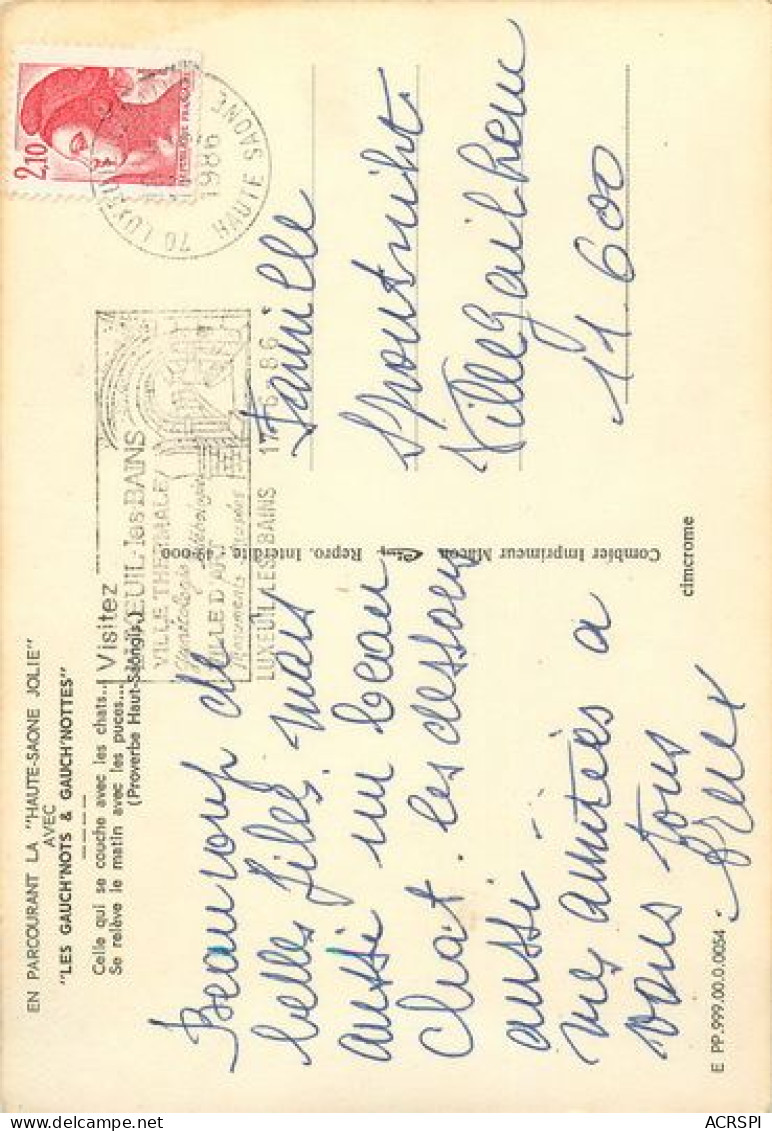 EN PARCOURANT LA "HAUTE-SAONE JOLIE"
AVEC
"LES GAUCH'NOTS & GAUCH'NOTTES"
Celle qui se couche avec les chats...
Se relève le matin avec les puces...
(Proverbe Haut-Saônois)
Beaucoup de
belles filles, mais
aussi un beau
chat. les dessous
aussi -
mes amitiés a
vous tous
E PP.999.00.0.0054
Combier Imprimeur Mâcon Cim Repro. Interdite
cimcrome
2,10
70 LUXEUIL
1986
HAUTE SAONE
Visitez
LUXEUIL-les-BAINS
VILLE THERMALE
VILLE D'ART
LUXEUIL-LES-BAINS 17-6-86
Famille
Villegailhenc
11.600
ACRSPI